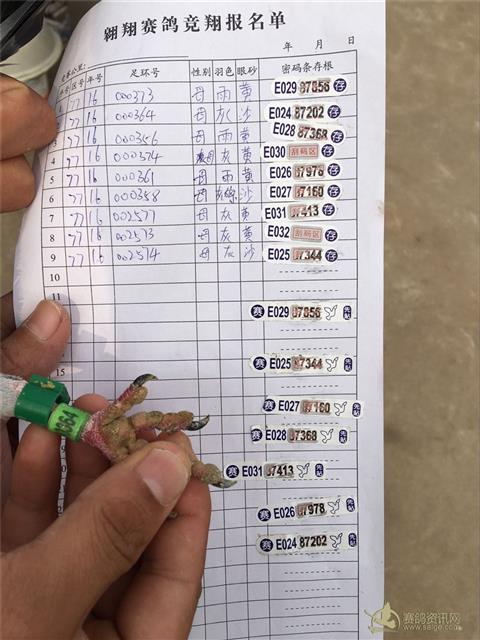 翱翔赛鸽竞翔报名单
年 月 日
区号 年号 足环号 性别 羽色 眼砂 密码条存根
77 16 000373 母 雨 黄 E029 87856 存
77 16 000364 母 灰 沙 E024 87202 存
3 77 16 000356 母 雨 黄 E028 87368 存
4 77 16 000374 母 灰 黄 E030 刮码区 存
5 77 16 000361 母 雨 黄 E026 87978 存
6 77 16 000358 母 沙 E027 87160 存
7 77 16 002577 母 灰 黄 E031 87413 存
8 77 16 002573 母 灰 黄 E032 刮码区 存
9 77 16 002574 母 灰 沙 E025 87344 存
10
11
赛 E029 87856
赛 E025 87344
15
赛 E027 87160
赛 E028 87368
364
赛 E031 87413
赛 E026 87978
赛 E024 87202
赛鸽资讯网
www.saige.com